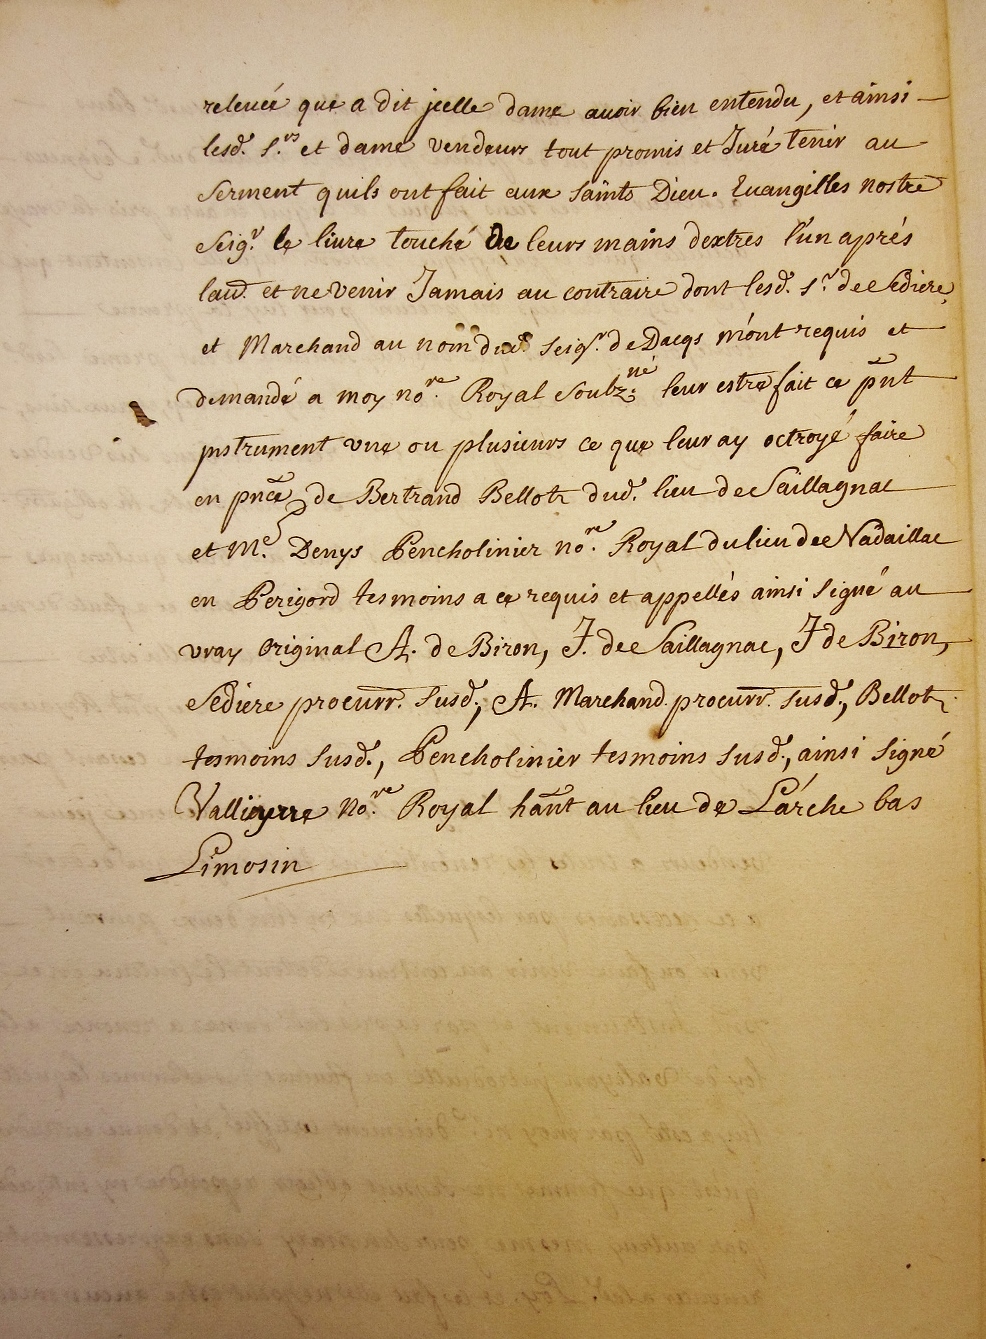 releuée que a dit jcelle dame auoir bien entendu, et ainsi
lesd. s.rs et dame vendeurs tout promis et Juré tenir au
Serment quils ont fait aux saints Dieu. Euangilles nostre
Seig.r le liure touché de leurs mains dextres l'un aprés
laud. et ne venir Jamais au contraire dont lesd. s.r de Sediere
et Marchand au nom dud. seig.r de Dacqs m'ont requis et
demandé a moy no.re Royal Soubz.né leur estre fait ce pñt
jnstrument vne ou plusieurs ce que leur ay octroyé faire
en pñce de Bertrand Bellot dud. lieu de Saillagnac
et M.e Denys Pencholinier no.re Royal du lieu de Nadaillac
en Perigord tesmoins a ce requis et appellés ainsi signé au
vray original A. de Biron, J. de Saillagnac, J de Biron,
Sediere procurr. susd., A. Marchand procurr. susd., Bellot
tesmoins susd., Pencholinier tesmoins susd., ainsi signé
Valliyerre No.re Royal hañt au lieu de L'arche bas
Limosin